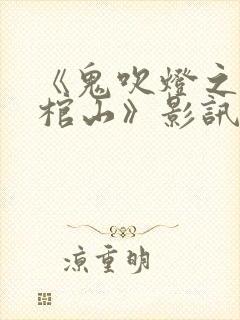 《鬼吹燈之
棺山》影訊
涼重明